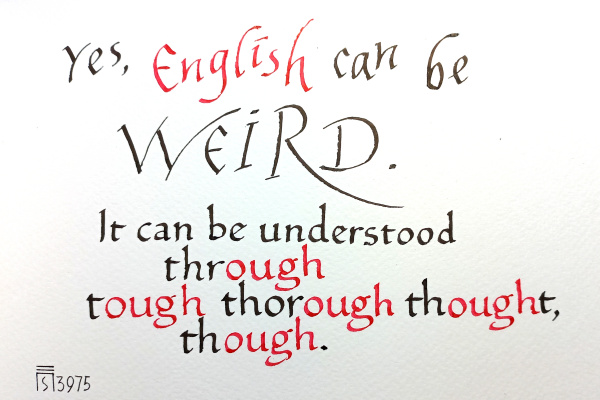 yes, English can be
WEiRD.
It can be understood
through
tough thorough thought,
though.
IS 3975